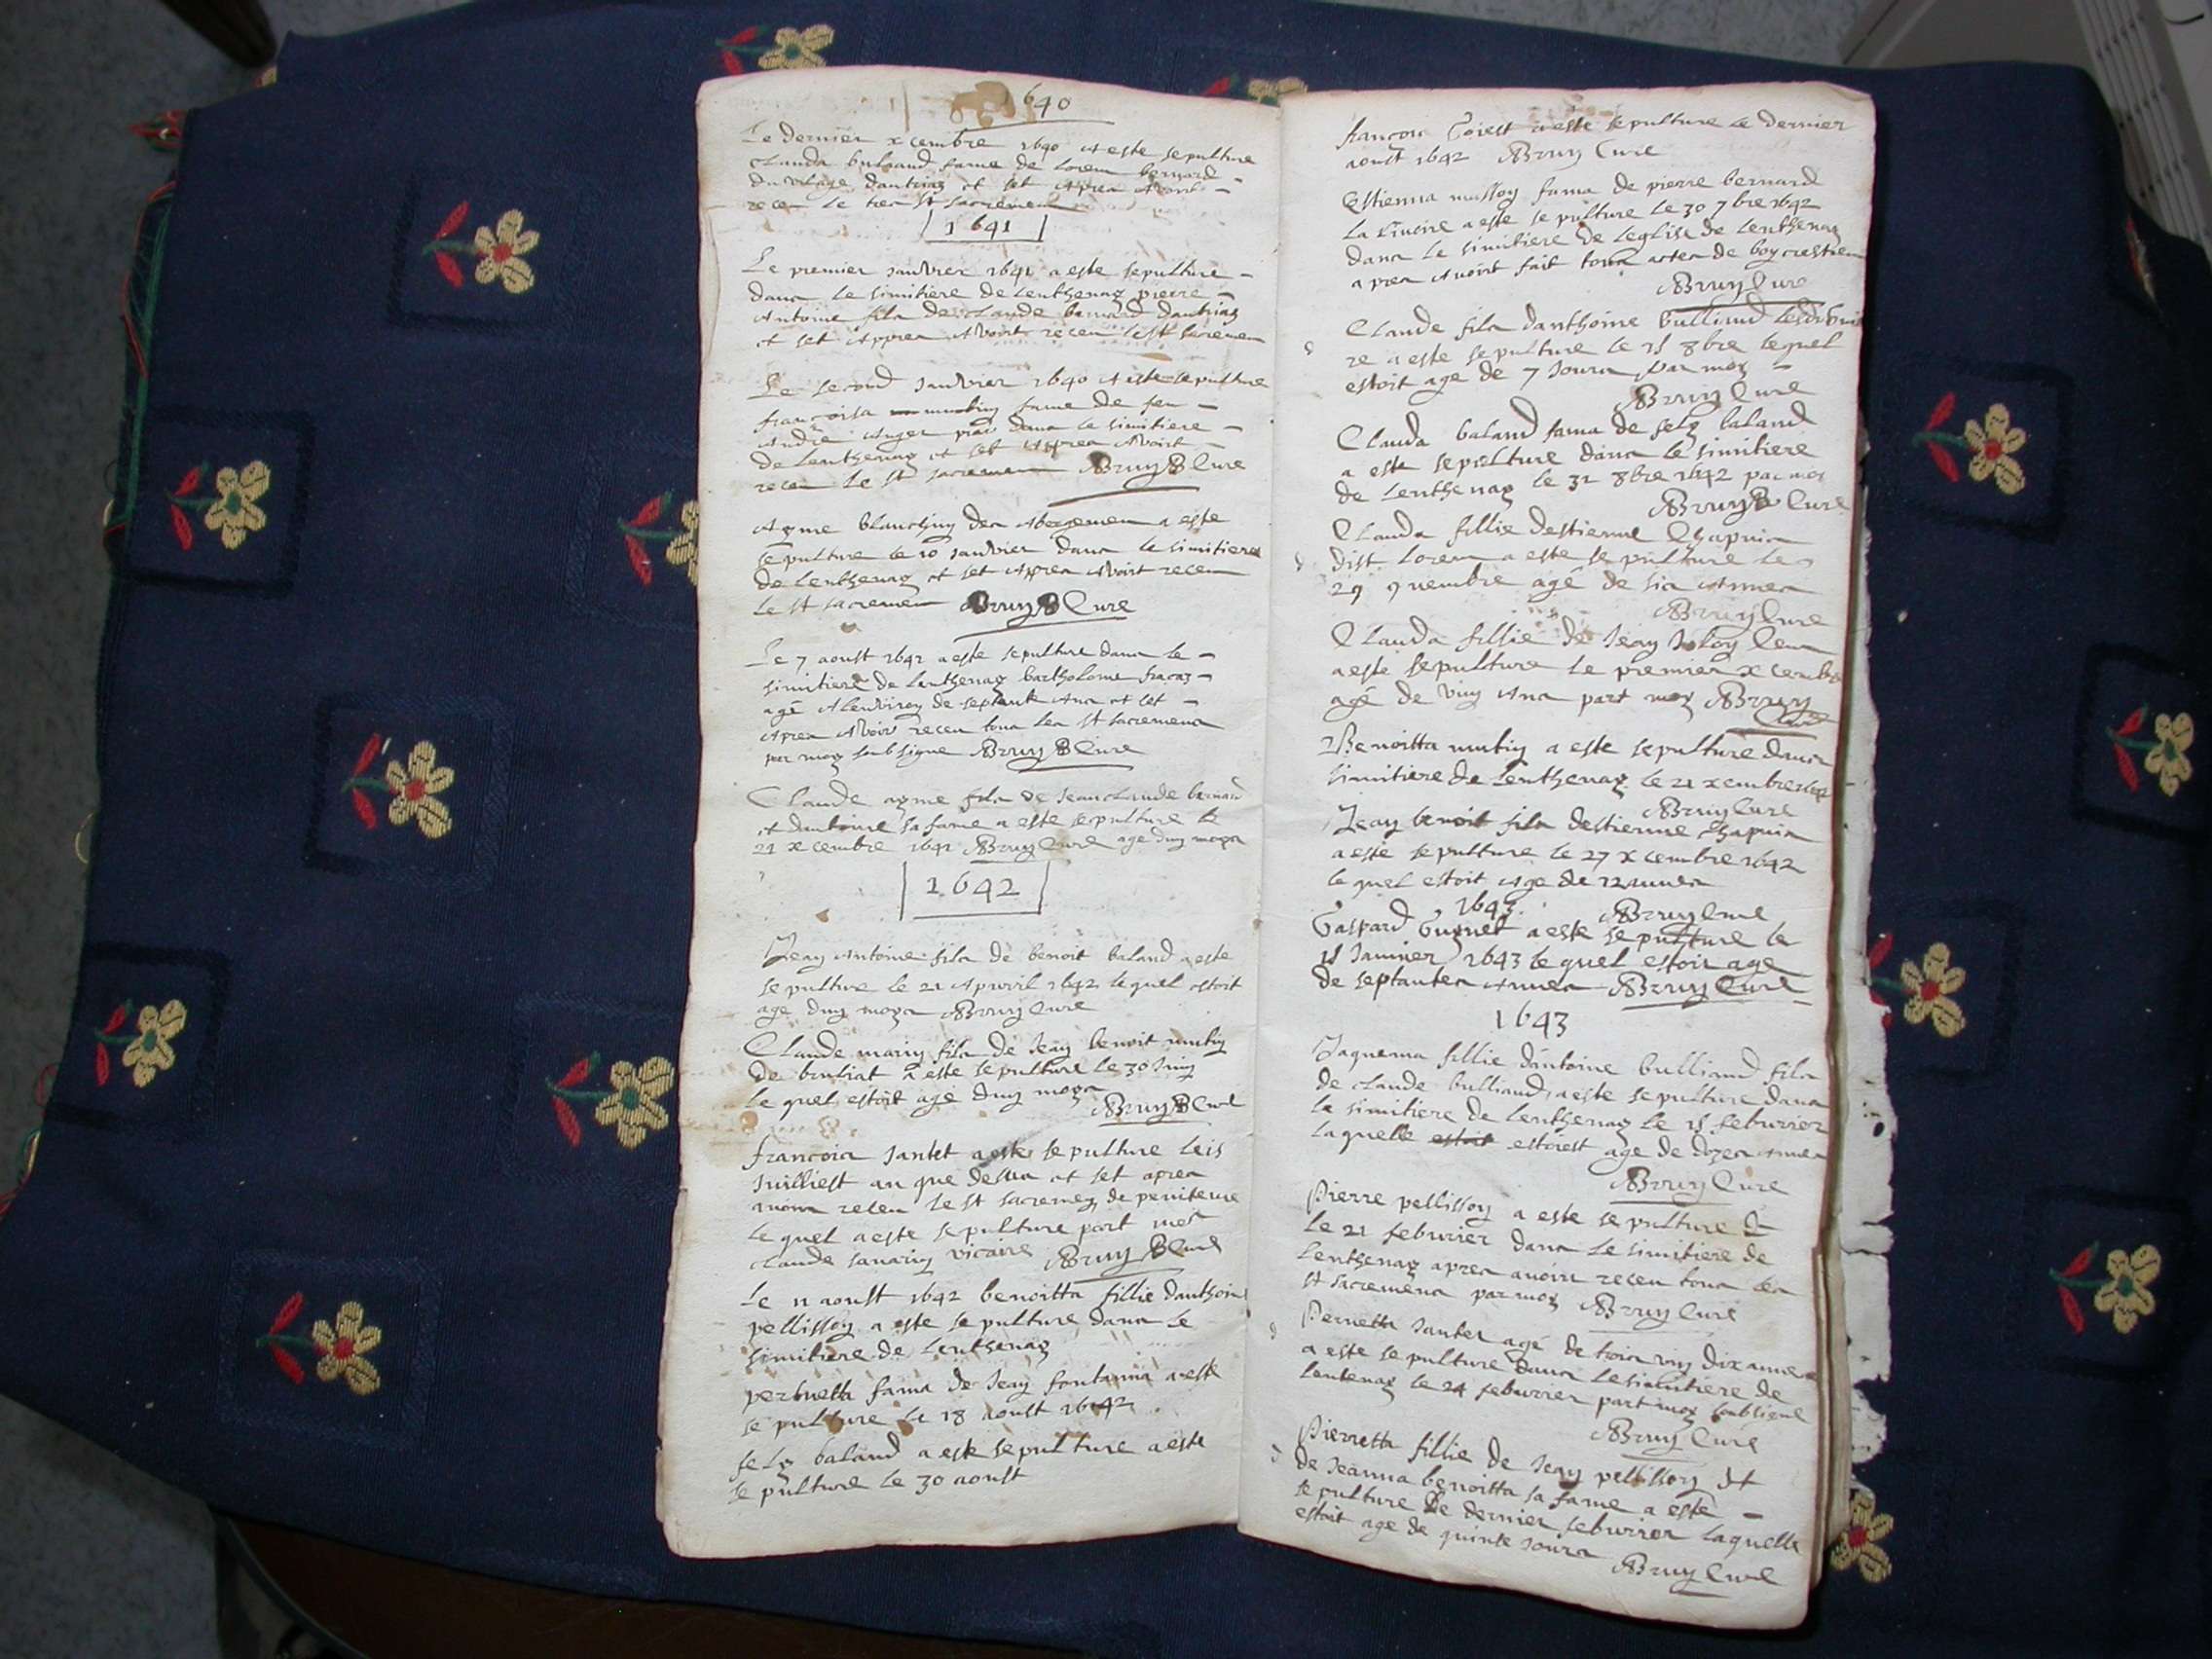 1640
Le dernier xcembre 1640 a este sepulture
Clauda bulliand fame de Lorem bernard
du vilage dantriaz et set apres avoir
receu le tres st sacremen
1641
Le premier Janvier 1641 a este sepulture
dans le simitiere de Lenthenaz pierre
Antoine fils de Claude bernard dantriaz
et set appres avoir receu le st sacremen
Le second Janvier 1640 a este sepulture
françoisa mutin fame de feu
André dans le simitiere
de Lenthenaz et set appres avoir
receu le st sacremen ABruyB Cure
Ayme blanchin des Abergemen a este
sepulture le 10 Janvier dans le simitiere
de Lenthenaz et set appres avoir receu
le st sacremen ABruyB Cure
Le 7 aoust 1641 a este sepulture dans le
simitiere de Lenthenaz bartholome fracaz
agé alenviron de septante ans et set
apres avoir receu tous les st sacremens
par moy soubsigne ABruyB Cure
Claude ayme fils de Jean Claude bernard
et dantoine sa fame a este sepulture le
21 xcembre 1641 ABruy Cure age dun moys
1642
Jean Antoine fils de benoit baland a este
sepulture le 21 Apvril 1642 lequel estoit
age dun moys ABruy Cure
Claude marin fils de Jean benoit mutin
de bruliat a este sepulture le 30 Juin
le quel estoit age dun moys
ABruyB Cure
francois Jantet a este sepulture le 15
Juilliest an que dessus et set apres
avoir receu le st sacremen de penitence
le quel a este sepulture part mes
Claude savarin vicaire ABruyB Cure
Le 11 aoust 1642 benoitta fillie danthoin
pellisson a este sepulture dans le
simitiere de Lenthenaz
pernetta fama de Jean fontanna a este
sepulture le 18 aoust 1642
fely baland a este sepulture a este
sepulture le 30 aoust
francois Goiest a este sepulture le dernier
aoust 1642 ABruy Cure
Estienna musson fama de pierre bernard
la a este sepulture le 30 7bre 1642
dans le simitiere de leglise de Lenthenaz
apres avoirt fait tous actes de boy crestien
ABruy Cure
Claude fils danthoine bulliand
re a este sepulture le 15 8bre lequel
estoit age de 7 Jours par moy
ABruy Cure
Clauda baland fama de fely baland
a este sepulture dans le simitiere
de Lenthenaz le 31 8bre 1642 par moy
ABruyB Cure
Clauda fillie destienne Chapuis
dist Lorem a este sepulture le
29 9vembre agé de six Annes
ABruy Cure
Clauda fillie de Jean
a este sepulture le premier xcembre
agé de vin Ans part moy ABruy
Cure
Benoitta mutin a este sepulture dans
simitiere de Lenthenaz le 21 xcembre 1642
ABruy Cure
Jean benoit fils destienne Chapuis
a este sepulture le 27 xcembre 1642
le quel estoit age de 12 annes
1643. ABruy Cure
Gaspard Guynet a este sepulture le
15 Janvier 1643 le quel estoit age
de septantes annes ABruy Cure
1643
Jaquema fillie dantoine bulliand fils
de Claude bulliand, a este sepulture dans
le simitiere de Lenthenaz le 15 feburier
laquelle estoit estoiest age de dozes annes
ABruy Cure
Pierre pellisson a este sepulture
le 21 feburier dans le simitiere de
Lenthenaz apres avoir receu tous les
st sacremens par moy ABruy Cure
Pernetta Jantet agé de trois vin dix annes
a este sepulture dans le simitiere de
Lentenaz le 24 feburier part moy soubsigné
ABruy Curé
Pierretta fillie de Jean pellisson et
de Jeanna benoitta sa fame a este
sepulture le dernier feburier laquelle
estoit age de quinte Jours
ABruy Cure